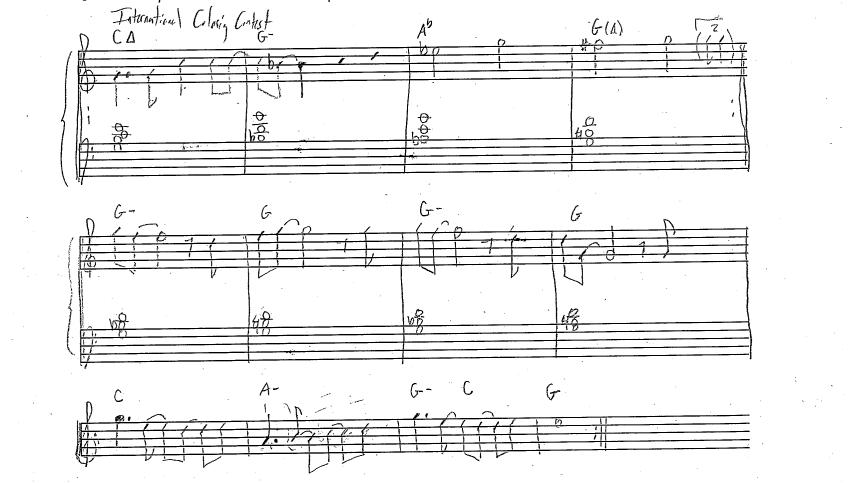 International Coloring Contest
C Δ G- A♭ G(Δ)
2
G- G G- G
C A- G- C G